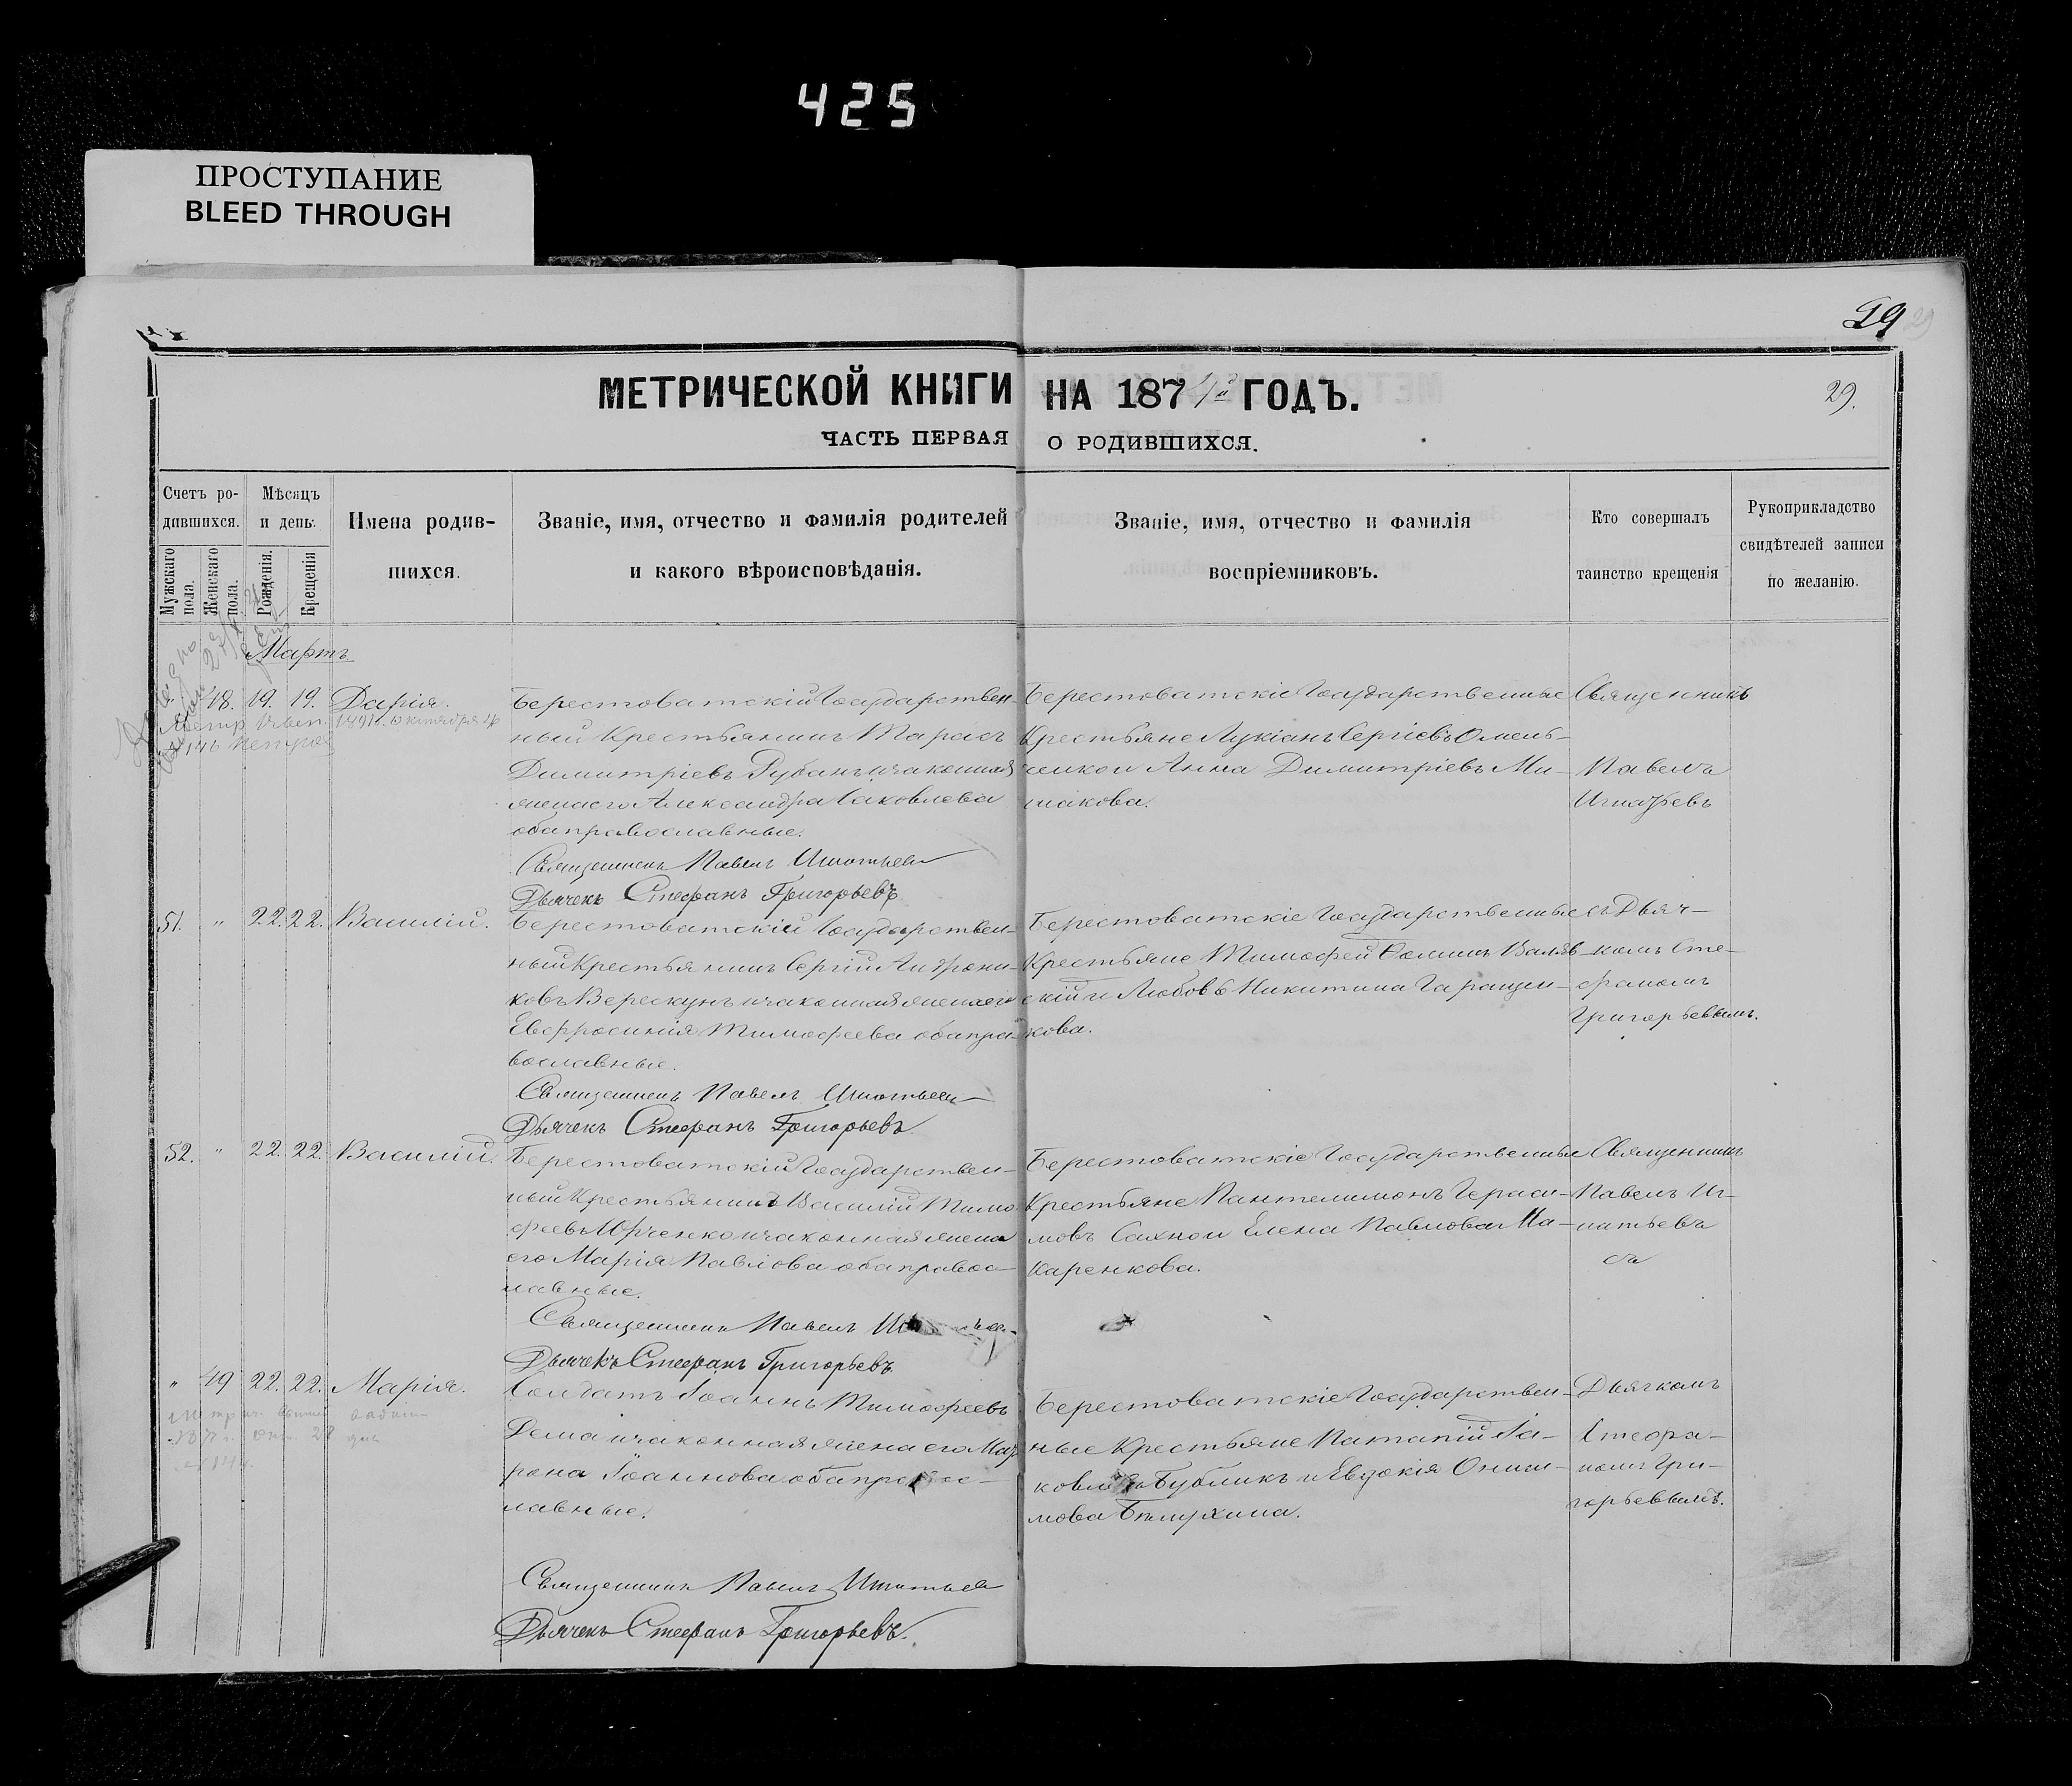 425
ПРОСТУПАНИЕ
BLEED THROUGH
29
29
МЕТРИЧЕСКОЙ КНИГИ НА 187 ГОДЪ.
29.
ЧАСТЬ ПЕРВАЯ О РОДИВШИХСЯ.
Счетъ ро-
дившихся.
Мужскаго пола.
Женскаго пола.
Мѣсяцъ
и день.
Рожденія.
Крещенія
Имена родив-
шихся.
Званіе, имя, отчество и фамилія родителей
и какого вѣроисповѣданія.
Званіе, имя, отчество и фамилія
воспріемниковъ.
Кто совершалъ
таинство крещенія
Рукоприкладство
свидѣтелей записи
по желанію.
Мартъ
" 48. 19. 19. Дарія.
Берестоватскій Государствен-
ный Крестьянинъ Тарасъ
Димитріевъ Рубанъ и законная
жена его Александра Іаковлева
оба православные.
Священникъ Павелъ Игнатьевъ
Дьячекъ Стефанъ Григорьевъ
Берестоватскіе Государственные
Крестьяне Лукіанъ Сергіевъ Омель-
ченко и Анна Димитріевъ Ми-
шакова.
Священникъ
Павелъ
Игнатьевъ
51. " 22. 22. Василій.
Берестоватскій Государствен-
ный Крестьянинъ Сергій Андрони-
ковъ Верескунъ и законная жена его
Евфросинія Тимофеева оба пра-
вославные.
Священникъ Павелъ Игнатьевъ
Дьячекъ Стефанъ Григорьевъ
Берестоватскіе Государственные
Крестьяне Тимофей Фоминъ Валяв-
скій и Любовь Никитина Гаращен-
кова.
съ Дьяч-
комъ Сте-
фаномъ
Григорьевымъ.
52. " 22. 22. Василій.
Берестоватскій Государствен-
ный Крестьянинъ Василій Тимо-
феевъ Юрченко и законная жена
его Марія Павлова оба правос-
лавные.
Священникъ Павелъ
Дьячекъ Стефанъ Григорьевъ
Берестоватскіе Государственные
Крестьяне Пантелимонъ Гераси-
мовъ Сахно и Елена Павлова Ма-
каренкова.
Священникъ
Павелъ Иг-
натьевъ
съ
" 49 22. 22. Марія.
Солдатъ Іоаннъ Тимофеевъ
Дема и законная жена его Мат-
рона Іоаннова оба правос-
лавные.
Священникъ Павелъ Игнатьевъ
Дьячекъ Стефанъ Григорьевъ.
Берестоватскіе Государствен-
ные Крестьяне Патапій Іа-
ковлевъ Бубликъ и Евдокія Ониси-
мова
Дьячкомъ
Стефа-
номъ Гри-
горьевымъ.